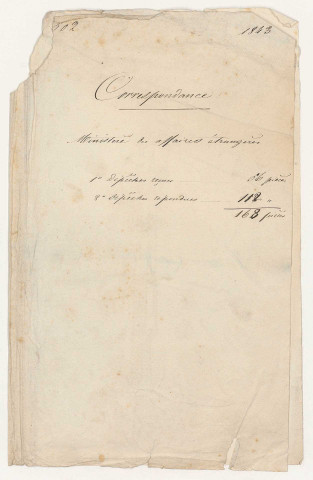 102 1843
Correspondance
Ministère des affaires étrangères
1° Dépêches reçues pièces
2° Dépêches répondues 112 "
168 pièces